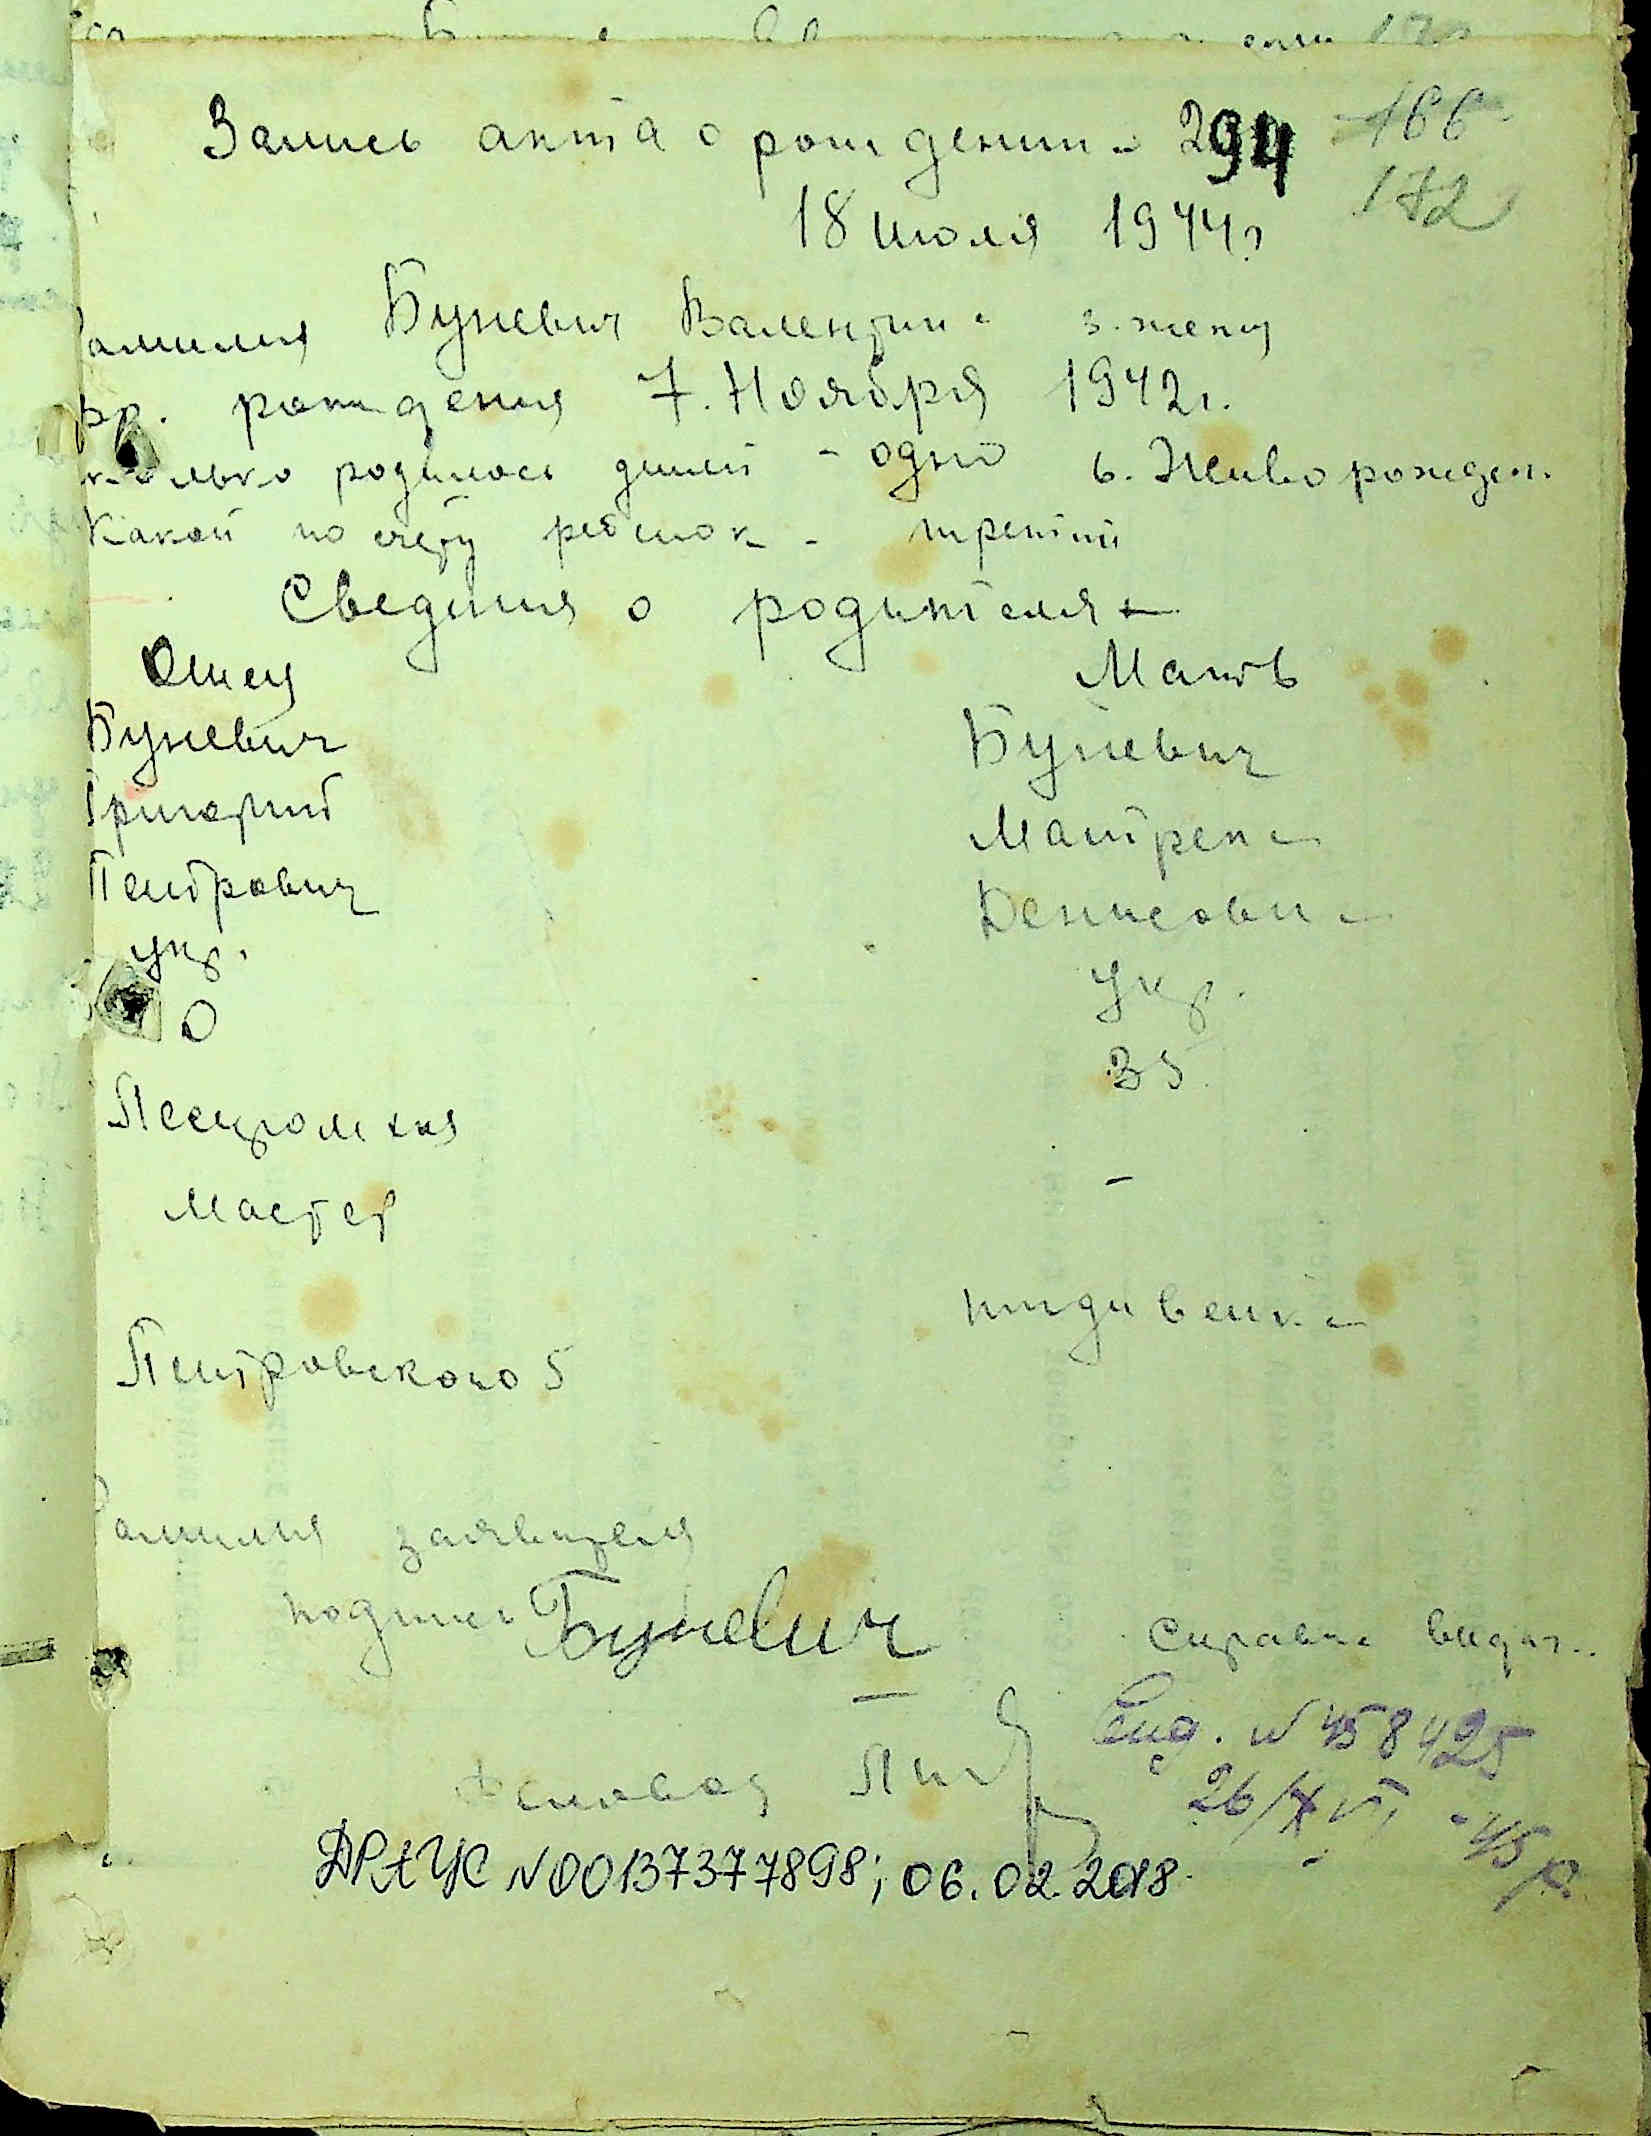 Запись акта о рождении 294
166
172
18 июля 1944г
Фамилия Буневич Валентина 3. жен
вр. рождения 7. Ноября 1942г.
сколько родилось детей - одно 6. Живорожден.
Какой по счету ребенок - третий
Сведения о родителях
Отец Мать
Буневич Буневич
Григорий Матрена
Петрович Денисовна
укр. Укр.
35
-
Мастер
иждивенка
Петровского 5
Фамилия заявителя
подпись Буневич
Справка выдан.
N 458425
26/
-45 р.
ДРАЦС N00137377898; 06.02.2018.